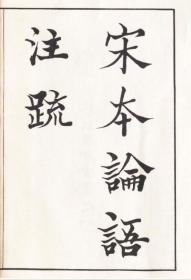 宋本論語
注疏